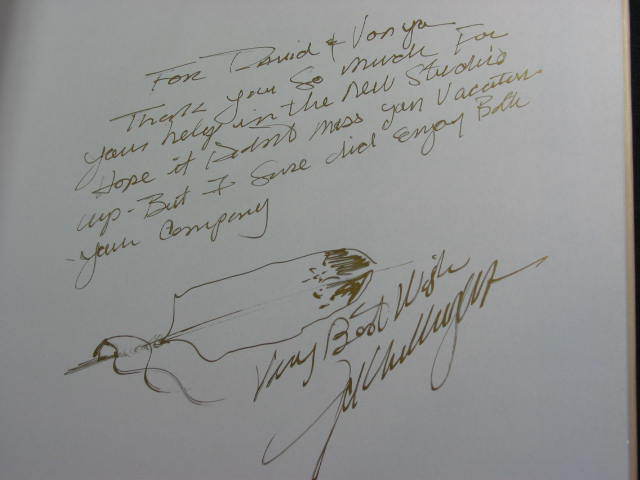 For David & Vonya
Thank you so much For
your help in the new Studio
Hope it Didn't mess your Vacation
up - But I Sure did Enjoy Both
- your Company
Very Best Wish